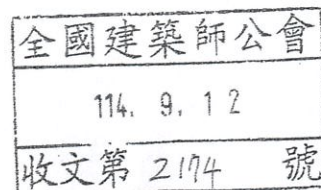 全國建築師公會
114. 9. 12
收文第 2174 號